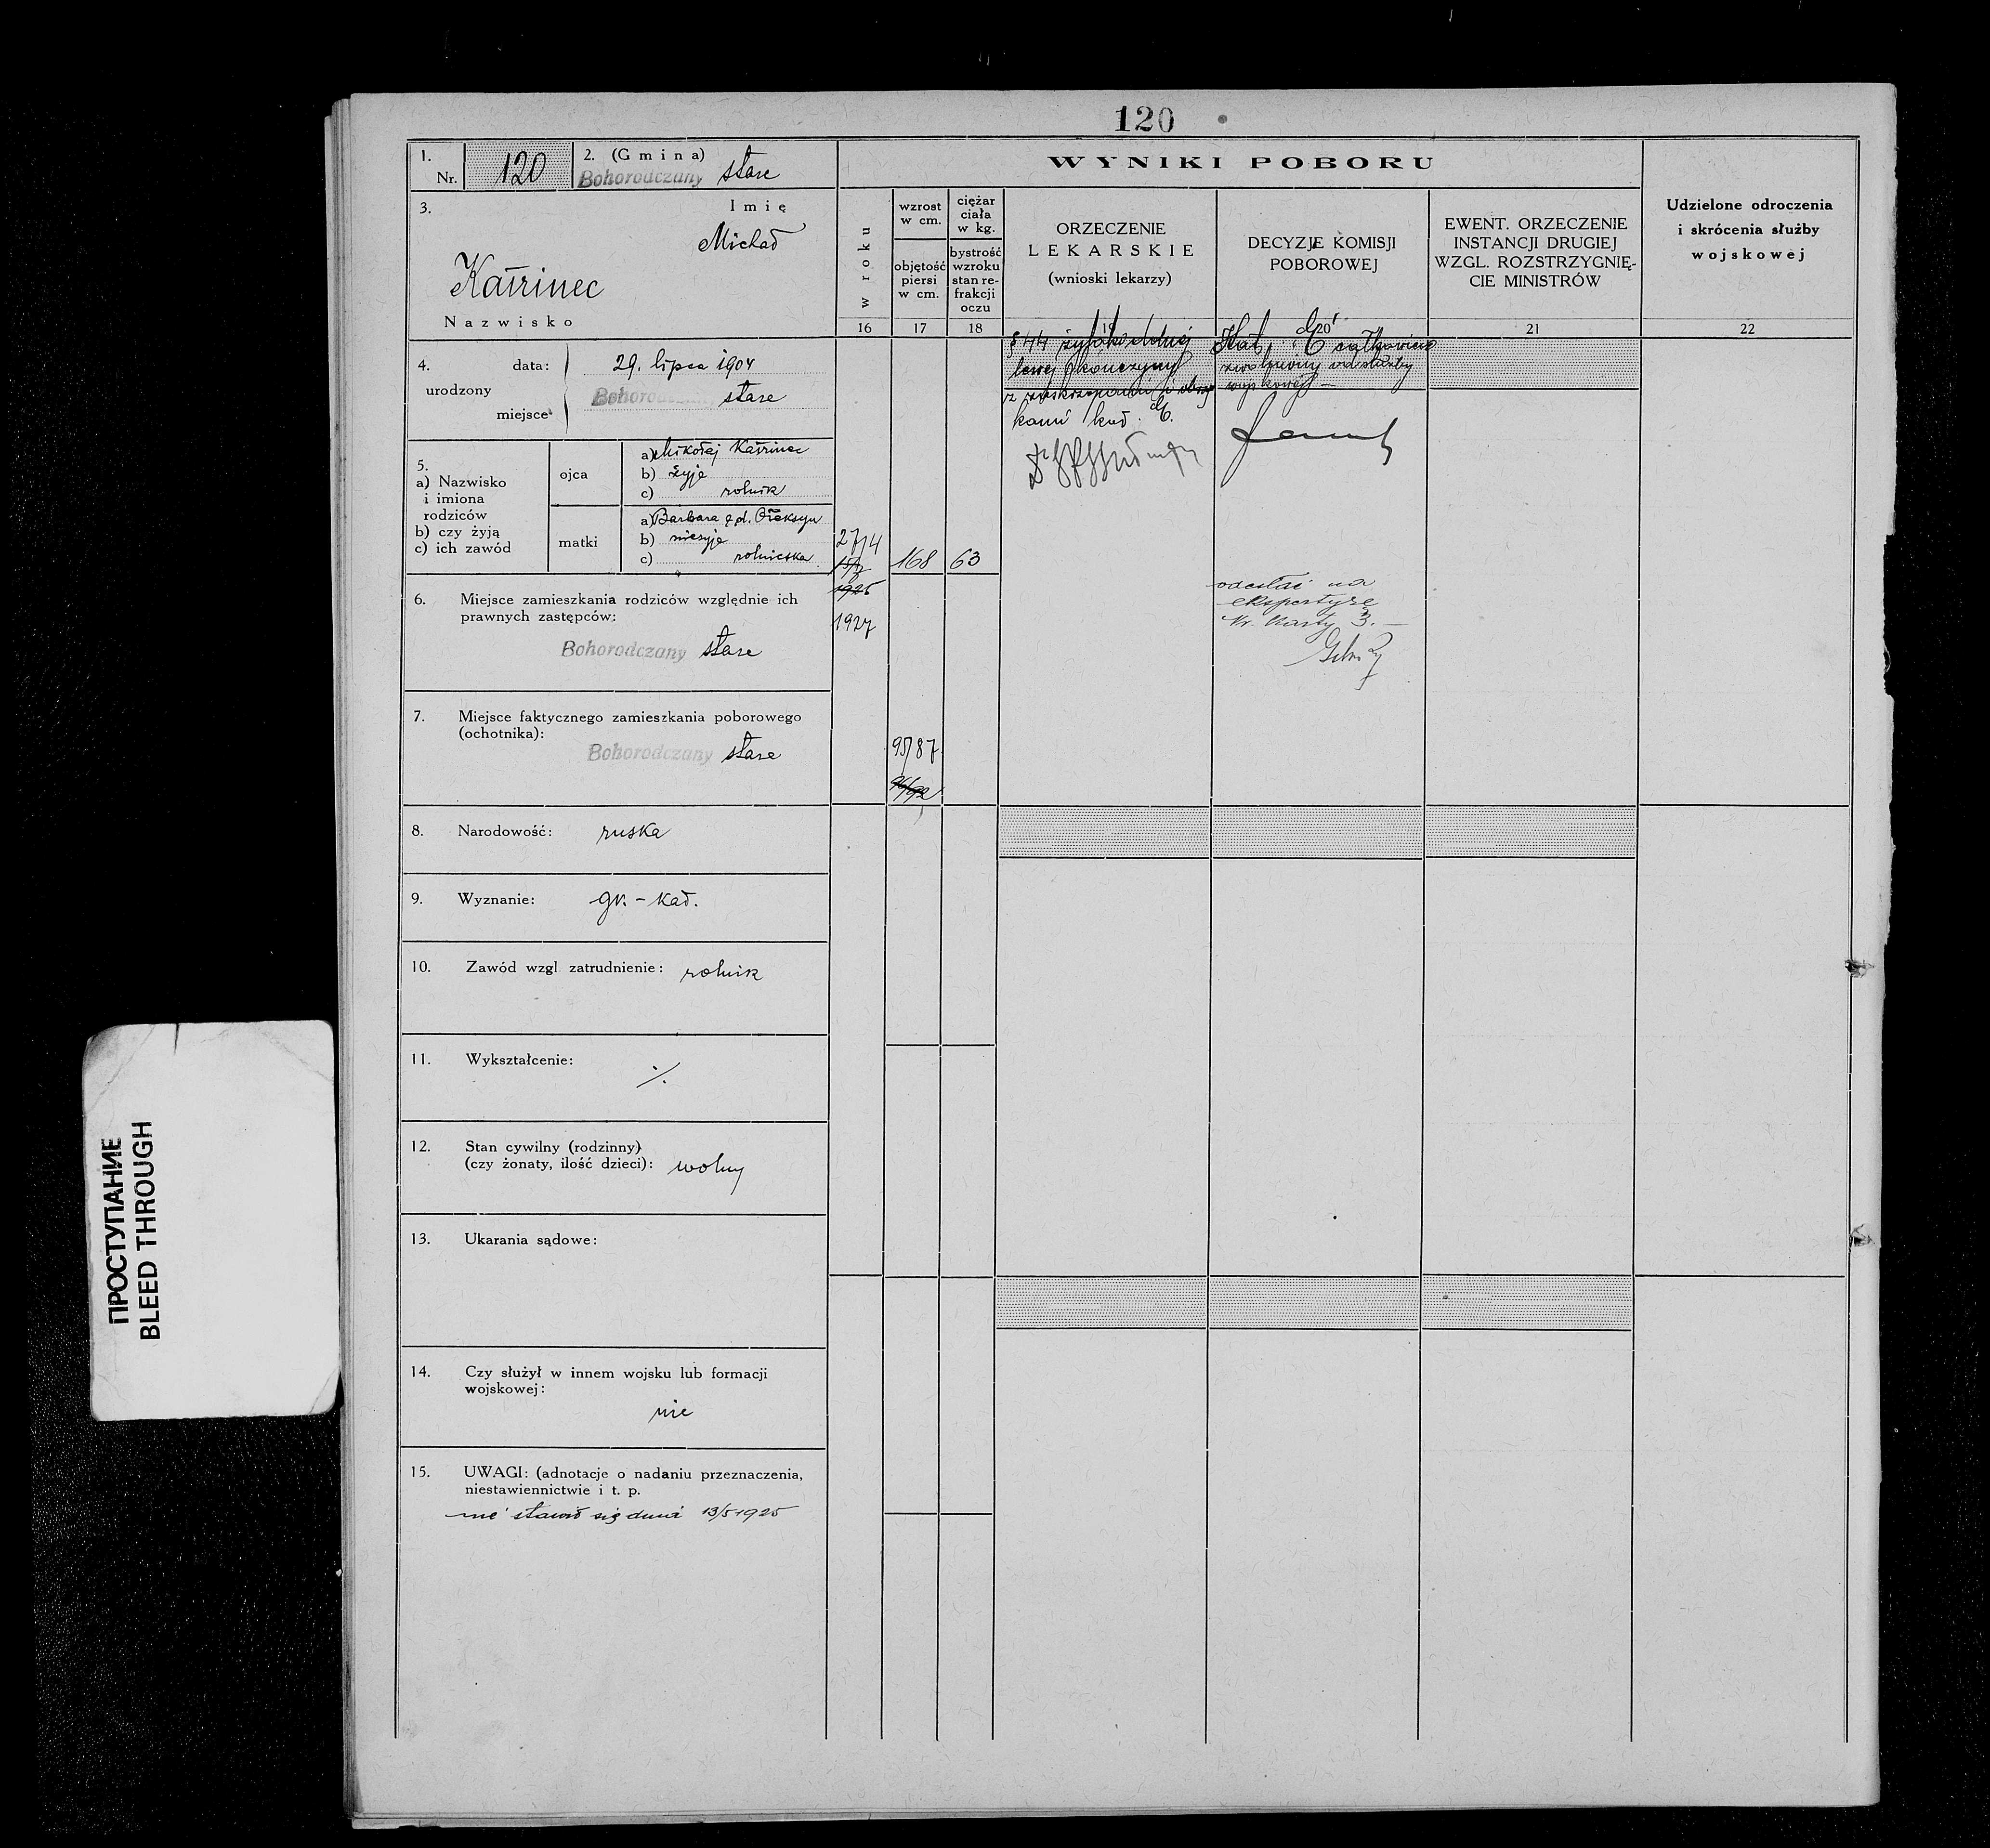 120
1.
Nr. 120
2. (Gmina)
Bohorodczany stare
3.
Imię
Michał
Katrinec
Nazwisko
4.
urodzony
data: 29. lipca 1904
miejsce Bohorodczany stare
5.
a) Nazwisko
i imiona
rodziców
b) czy żyją
c) ich zawód
ojca
a) Mikołaj Katrinec
b) żyje
c) rolnik
matki
a) Barbara z d. Oleksyn
b) nieżyje
c) rolniczka
6. Miejsce zamieszkania rodziców względnie ich
prawnych zastępców:
Bohorodczany stare
7. Miejsce faktycznego zamieszkania poborowego
(ochotnika):
Bohorodczany stare
8. Narodowość: ruska
9. Wyznanie: gr.-kat.
10. Zawód wzgl. zatrudnienie: rolnik
11. Wykształcenie:
./.
12. Stan cywilny (rodzinny)
(czy żonaty, ilość dzieci): wolny
13. Ukarania sądowe:
14. Czy służył w innem wojsku lub formacji
wojskowej:
nie
15. UWAGI: (adnotacje o nadaniu przeznaczenia,
niestawiennictwie i t. p.
nie stawił się dnia 13/5 1925
WYNIKI POBORU
w roku
16
27/4
15/7
1925
1927
wzrost
w cm.
objętość
piersi
w cm.
17
168
95/87
ciężar
ciała
w kg.
bystrość
wzroku
stan re-
frakcji
oczu
18
63
ORZECZENIE
LEKARSKIE
(wnioski lekarzy)
19
§ 44
lewej kończyny
kat. E.
DECYZJE KOMISJI
POBOROWEJ
20
Kat. "E" całkowicie
zwolniony od służby
wojskowej —
odesłać na
ekspertyzę
Nr. karty 3. —
EWENT. ORZECZENIE
INSTANCJI DRUGIEJ
WZGL. ROZSTRZYGNIĘ-
CIE MINISTRÓW
21
Udzielone odroczenia
i skrócenia służby
wojskowej
22
ПРОСТУПАНИЕ
BLEED THROUGH